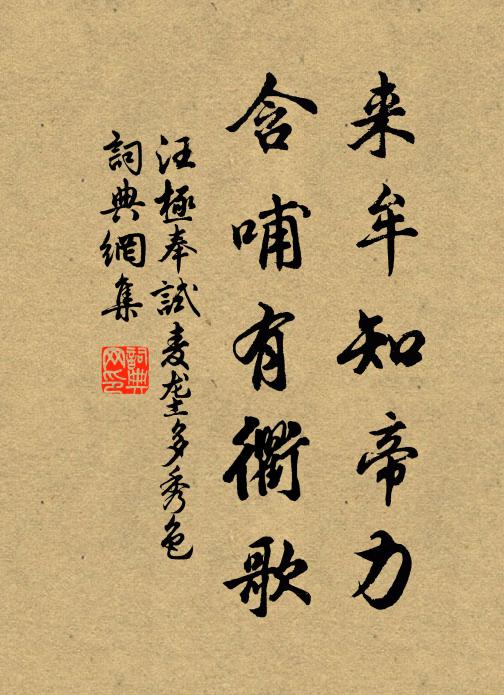 来牟知帝力
含哺有衢歌
汪極奉試麦垄多秀色
詞典網集
詞典
网印